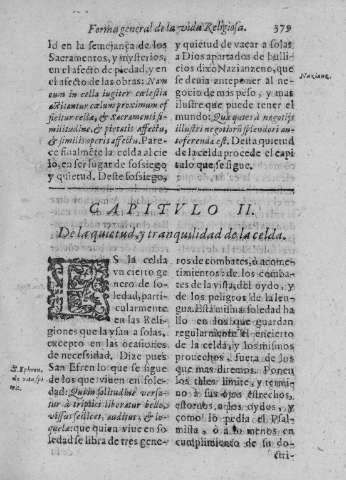 Forma general de la vida Religiosa. 379
ld en la semejança de los
Sacramentos, y mysterios,
en el afecto de piedad, y en
el afecto de las obras: Nam
cum in cella iugiter cælestia
actitantur cœlum proximum ef
ficitur cellæ, & Sacramenti si-
militudine, & pietatis affectu,
& similis operis affectu. Pare-
ce finalmẽte la celda al cie
lo, en ser lugar de sossiego
y quietud. Deste sossiego,
y quietud de vacar a solas
a Dios apartados de bulli-
cios dixo Nazianzeno, que
se deuia anteponer al ne-
gocio de mas peso, y mas
ilustre que puede tener el
mundo: Qua quies à negotijs
illustri negotiorũ splendori an-
teferenda est. Desta quietud
de la celda procede el capi
tulo que se sigue.
Nazianz.
CAPITVLO II.
De la quietud, y tranquilidad de la celda.
ES la celda
vn cierto ge
nero de so-
ledad, parti-
cularmente
en las Reli-
giones que la vsan a solas,
excepto en las ocasiones
de necessidad. Dize pues
San Efren lo que se sigue
de los que viuen en sole-
dad: Quin solitudine versa-
tur à triplici liberatur bello,
vissus scilicet, auditus, & lo-
quelæ: que quien viue en so
ledad se libra de tres gene-
S. Ephren.
ros de combates, ò acome-
timientos: de los comba-
tes de la vista, del oydo, y
de los peligros de la len-
gua. Esta misma soledad ha
llo en los que guardan
regularmente el encierto
de la celda, y los mismos
prouechos, fuera de los
que mas diremos. Ponen
los tales limite, y termi-
no à sus ojos estrechos,
estornos a los oydos, y
como lo pedia el Psal-
mista, ò à lo menos en
cumplimiento de su do-
ctri-